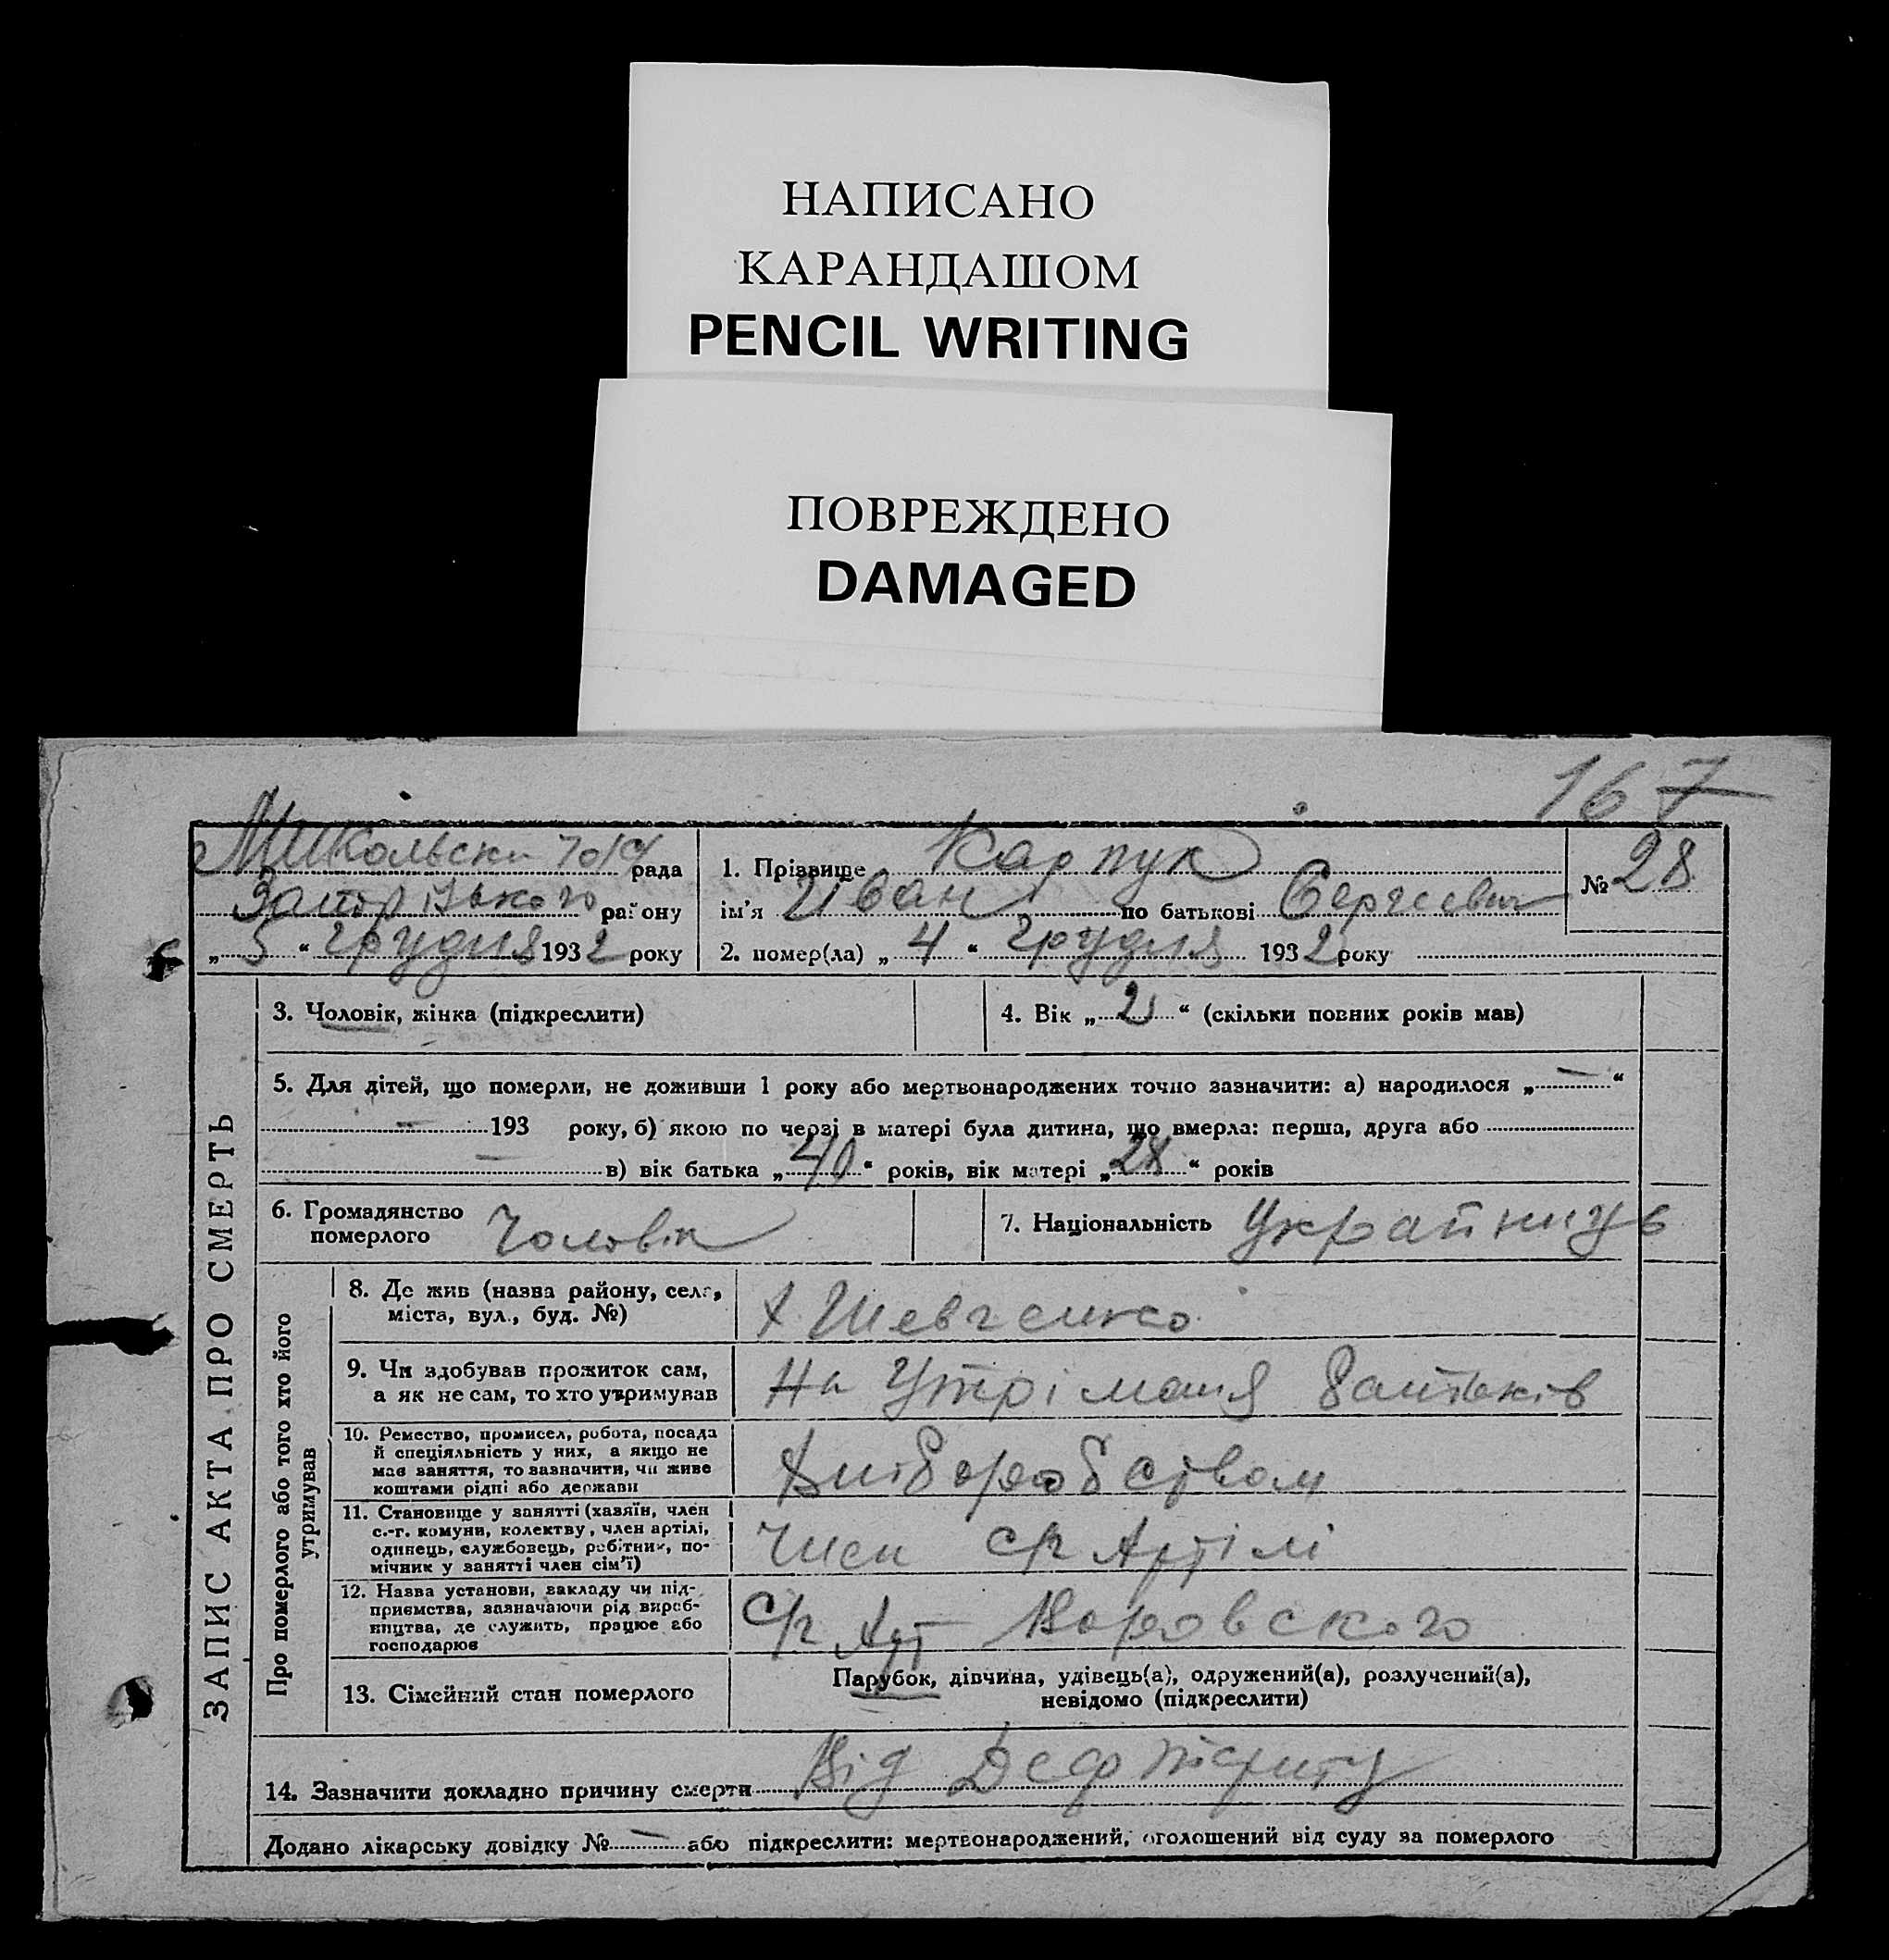 НАПИСАНО
КАРАНДАШОМ
PENCIL WRITING
ПОВРЕЖДЕНО
DAMAGED
167
рада
Запорізького району
„ 5 “ грудня 1932 року
1. Прізвище Карпук
ім'я Иван по батькові Сергеевич
№ 28
2. помер(ла) „ 4 “ грудня 1932 року
ЗАПИС АКТА ПРО СМЕРТЬ
3. Чоловік, жінка (підкреслити)
4. Вік „ 2 “ (скільки повних років мав)
5. Для дітей, що померли, не доживши 1 року або мертвонароджених точно зазначити: а) народилося „ — “
— 193 року, б) якою по черзі в матері була дитина, що вмерла: перша, друга або
— в) вік батька „ 40 “ років, вік матері „ 28 “ років
6. Громадянство
померлого Чоловік
7. Національність Украйнець
Про померлого або того хто його
утримував
8. Де жив (назва району, села,
міста, вул., буд. №)
х. Шевченко
9. Чи здобував прожиток сам,
а як не сам, то хто утримував
На Утріманя Батьків
10. Ремество, промисел, робота, посада
й спеціяльність у них, а якщо не
має заняття, то зазначити, чи живе
коштами рідні або держави
11. Становище у занятті (хазяїн, член
с.-г. комуни, колективу, член артілі,
одинець, службовець, робітник, по-
мічник у занятті член сім'ї)
Член с/г Артілі
12. Назва установи, закладу чи під-
приємства, зазначаючи рід вироб-
ництва, де служить, працює або
господарює
с/г Арт Воровского
13. Сімейний стан померлого
Парубок, дівчина, удівець(а), одружений(а), розлучений(а),
невідомо (підкреслити)
14. Зазначити докладно причину смерти Від Дефтириту
Додано лікарську довідку № — або підкреслити: мертвонароджений, оголошений від суду за померлого